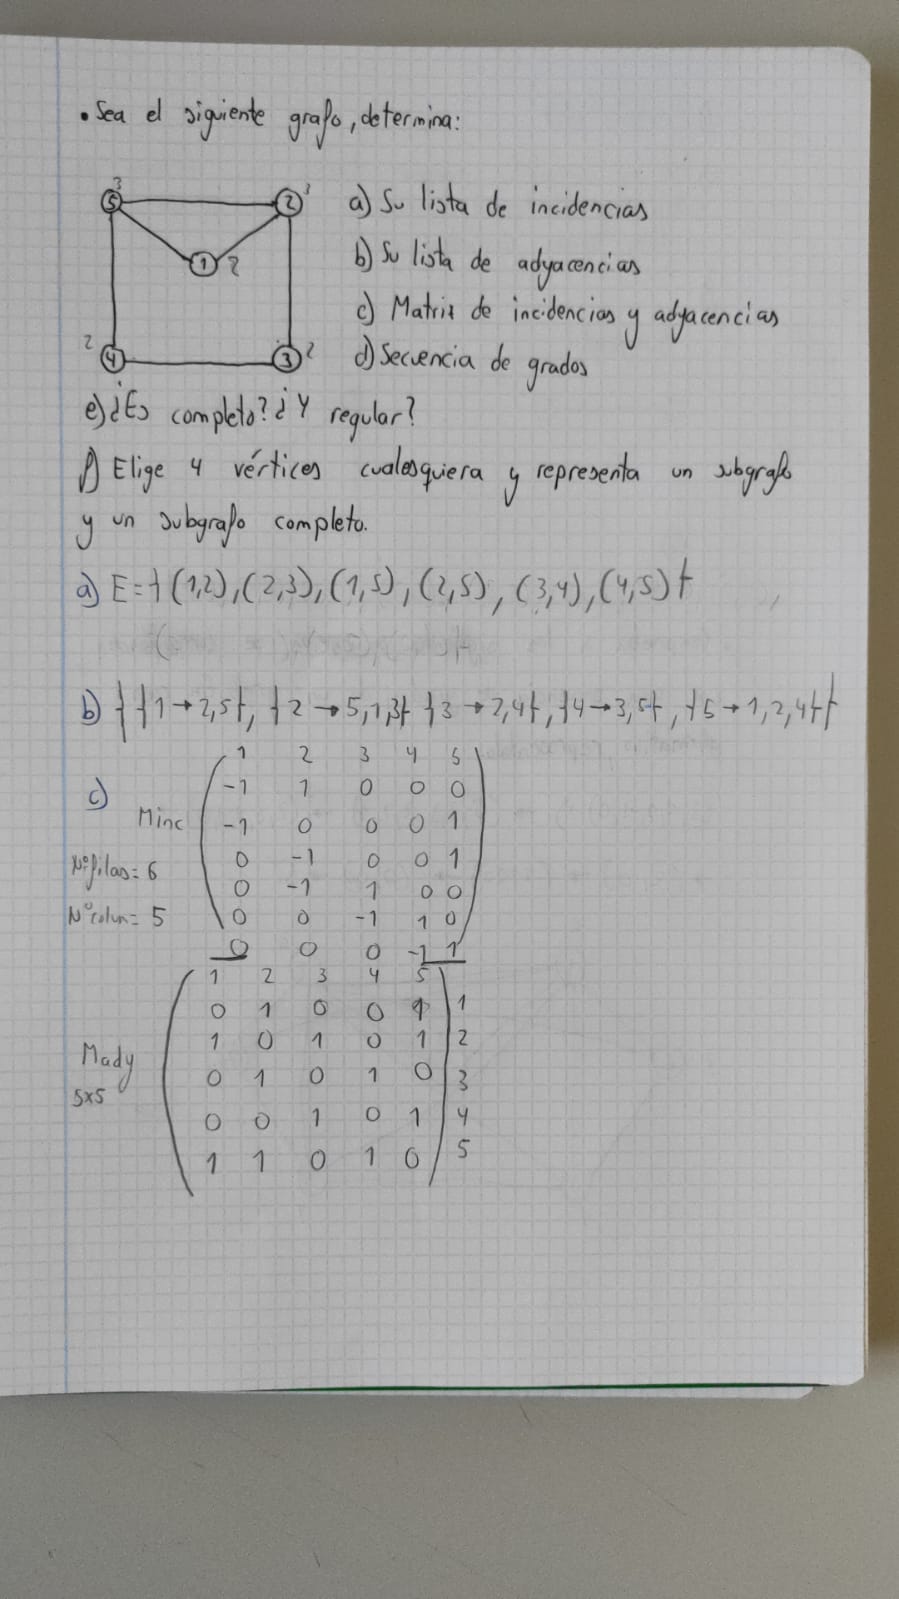 • Sea el siguiente grafo, determina:
3 3
5 2
a) Su lista de incidencias
1 2
b) Su lista de adyacencias
c) Matriz de incidencias y adyacencias
2 4 3 2
d) Secuencia de grados
e) ¿Es completo? ¿Y regular?
f) Elige 4 vértices cualesquiera y representa un subgrafo
y un subgrafo completo.
a) E={(1,2),(2,3),(1,5),(2,5),(3,4),(4,5)}
b) {{1→2,5}, {2→5,1,3} {3→2,4}, {4→3,5}, {5→1,2,4}}
c)
1 2 3 4 5
-1 1 0 0 0
Minc -1 0 0 0 1
Nº filas=6 0 -1 0 0 1
0 -1 1 0 0
Nº colum=5 0 0 -1 1 0
0 0 0 -1 1
1 2 3 4 5
0 1 0 0 1 1
1 0 1 0 1 2
Mady 0 1 0 1 0 3
5x5 0 0 1 0 1 4
1 1 0 1 0 5